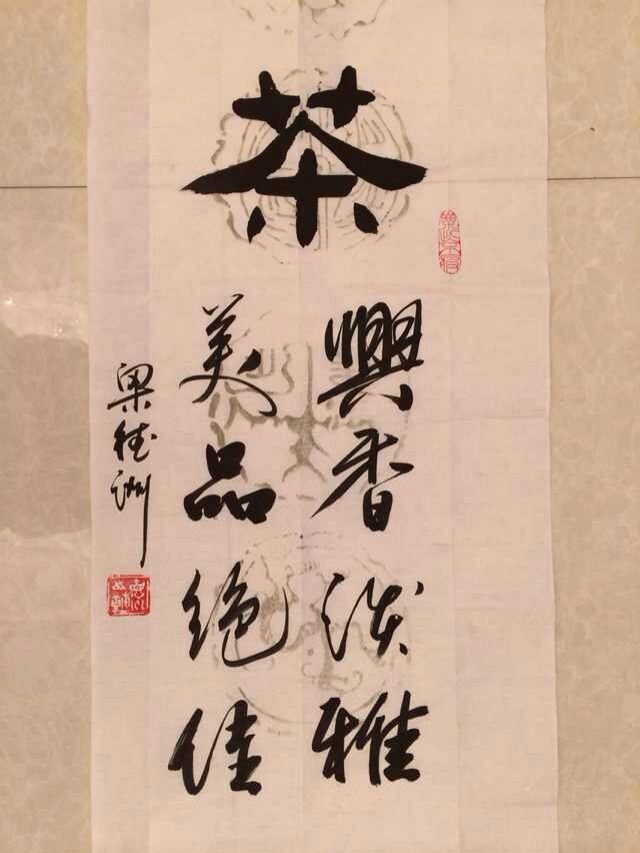 茶
興香淡雅
美品绝佳
梁德洲